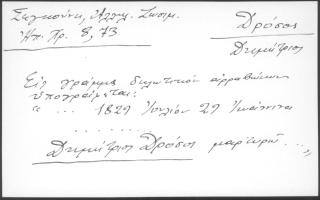 Σεγκούνη, Ἀλληλ. Ζωσιμ.
Ἠπ. Πρ. 8, 73
Δρόσος
Δημήτριος
Εἰς γράμμα δηλωτικόν ἀρραβώνων
ὑπογράφεται:
" ... 1829 Ἰουλίου 29 Ἰωάννινα
. . . . . . .
Δημήτριος Δρόσος μαρτυρῶ ... "